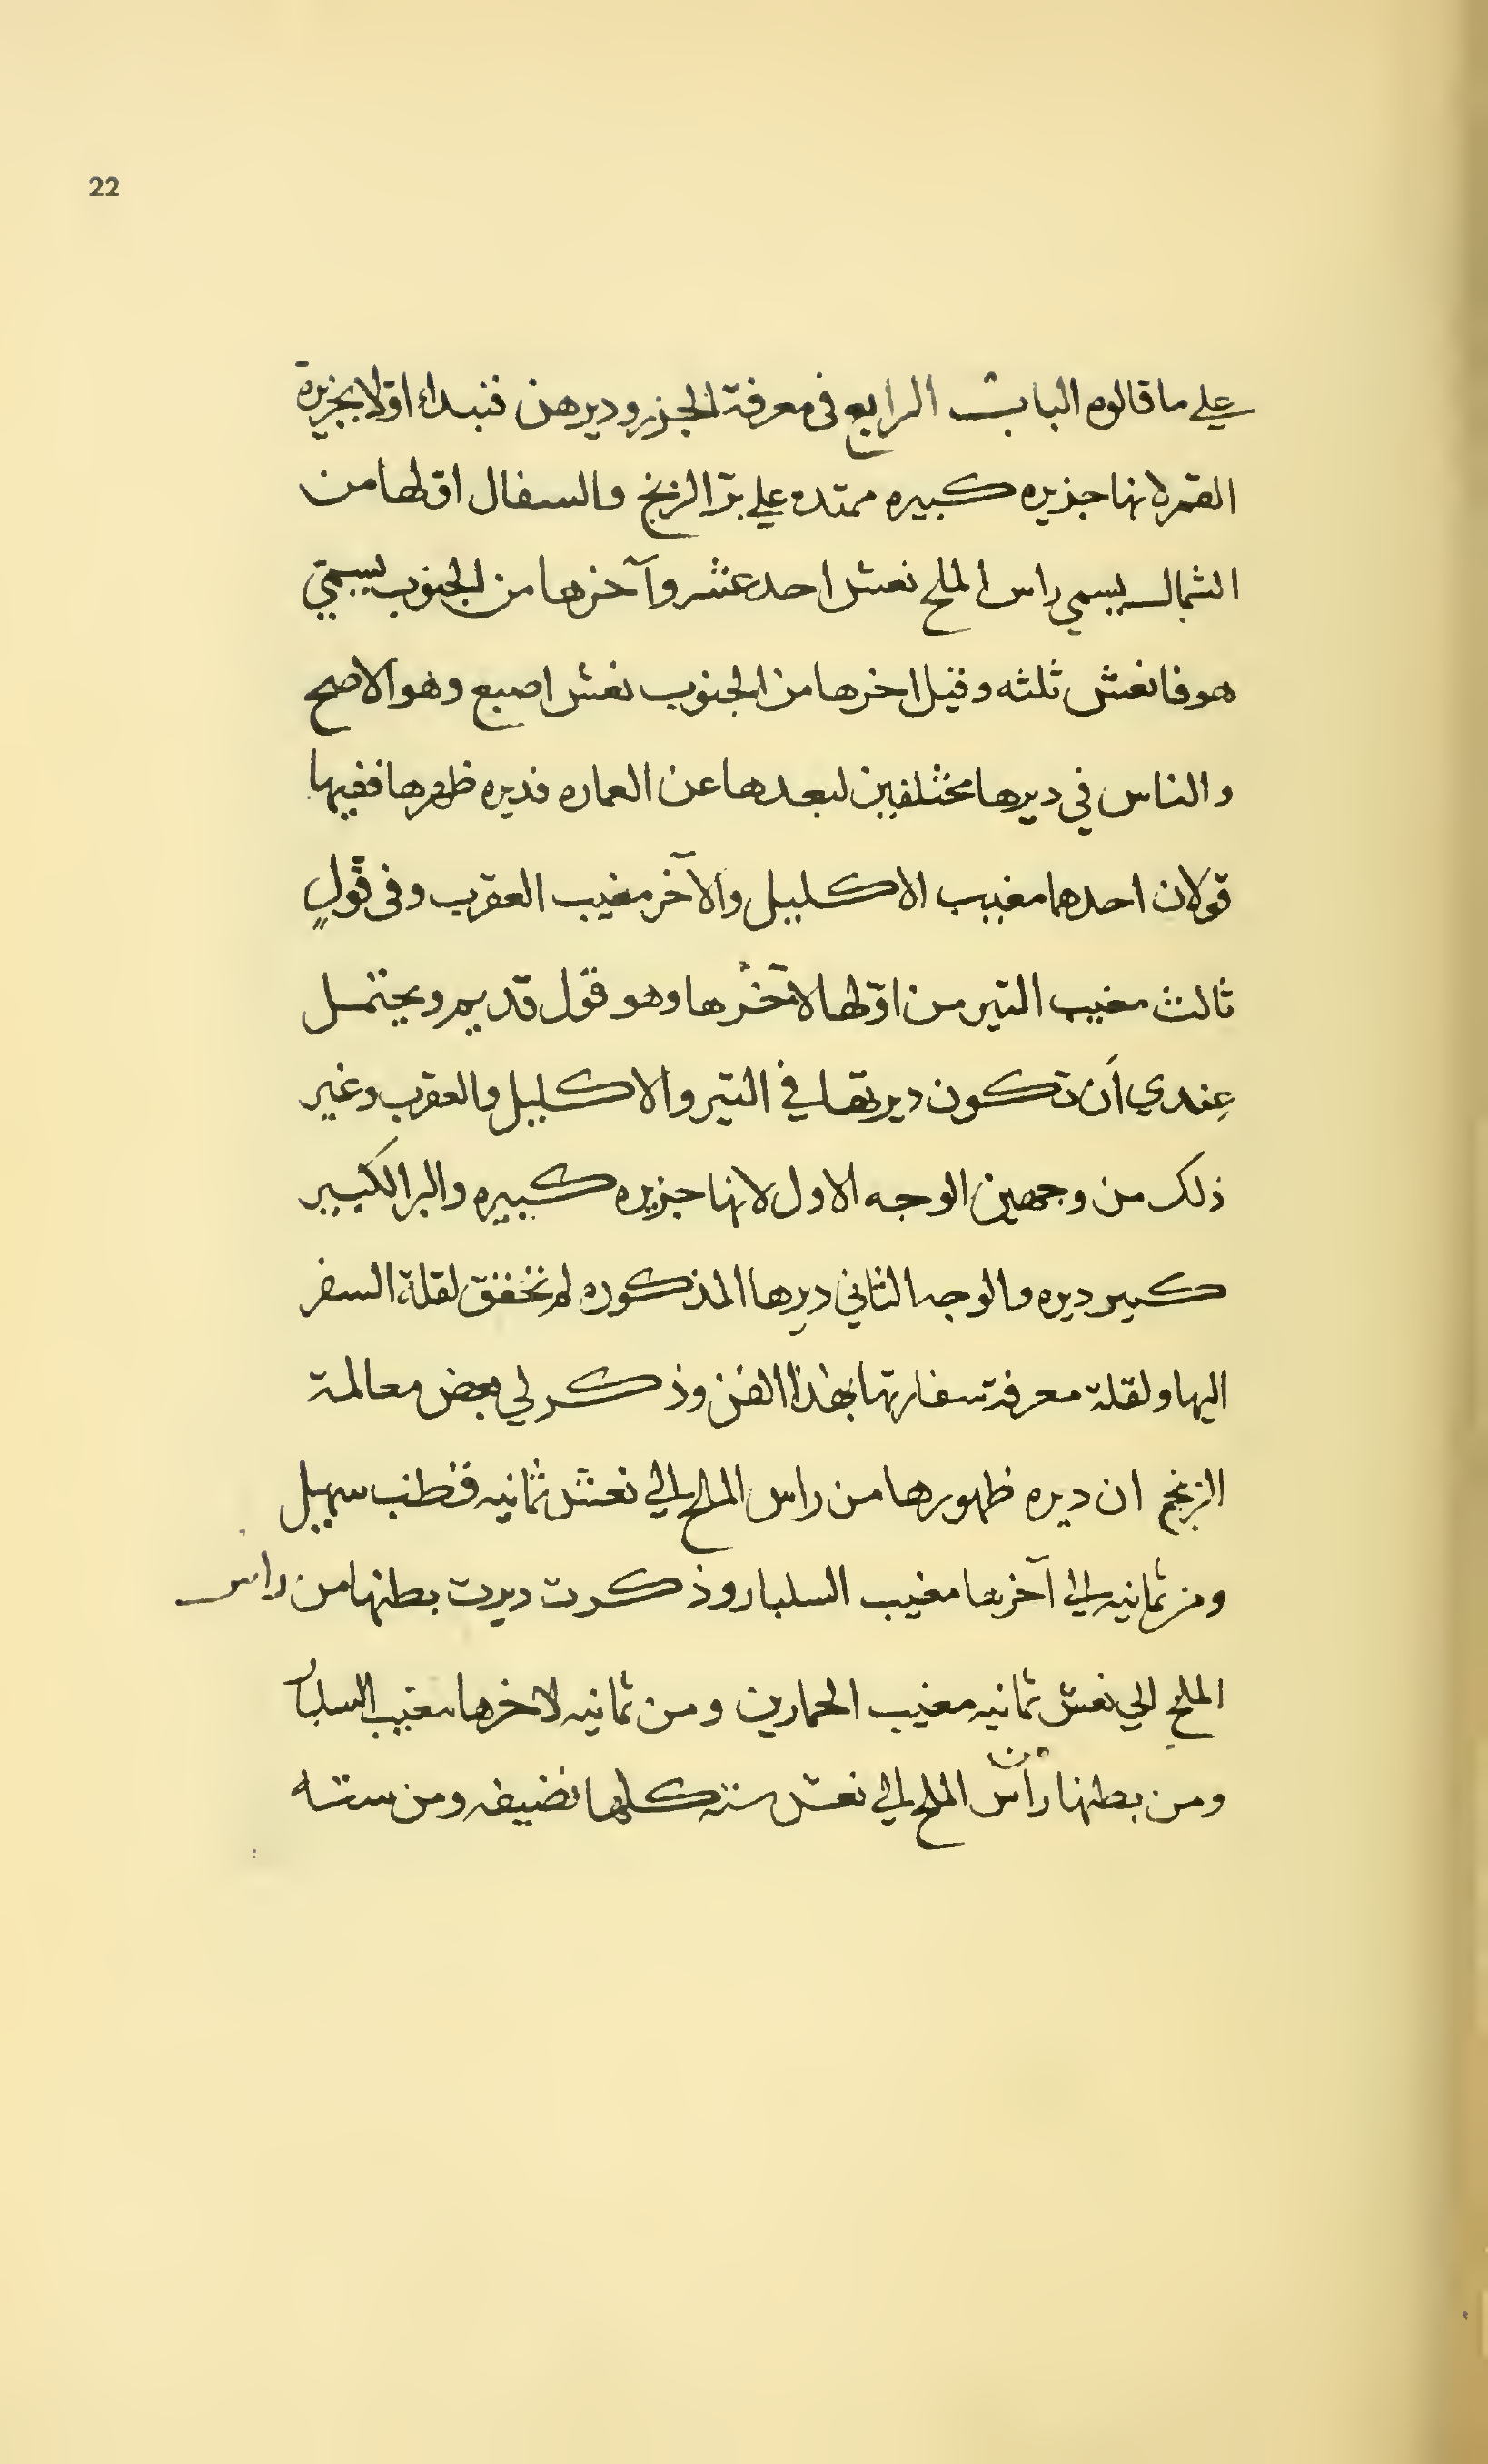 22
علي ما قالوه الباب الرابع في معرفة الجزر وديرهن فنبداء اوّلا بجزيرة
القمر لانها جزيره كبيره ممتده علي برّ الزنج والسفال اوّلها من
الشمال يسمي راس الملح نعش احد عشر وآخرها من الجنوب يسمّي
هوفا نعش ثلثه وقيل اخرها من الجنوب نعش اصبع وهو الاصح
والناس في ديرها مختلفين لبعدها عن العماره فديره ظهرها ففيها
قولان احدهما مغيب الاكليل والآخر مغيب العقرب وفى قولٍ
ثالث مغيب التير من اوّلها لآخرها وهو قول قديم ويحتمل
عِندي أن تكون ديرتها في التير والاكليل والعقرب وغير
ذلك من وجهين الوجه الاول لانها جزيره كبيره والبر الكبير
كبير ديره والوجه الثاني ديرها المذكوره لم تخقق لقلة السفر
اليها ولقلة معرفة سفارتها بهذا الفن وذكر لي بعض معالمة
الزنج ان ديره ظهورها من راس الملح إلي نعش ثمانيه قطب سهيل
ومن ثمانيه إلي آخرها مغيب السلبار وذكرت ديرت بطنها من راس
الملح الي نعش ثمانيه مغيب الحمارين ومن ثمانيه لاخرها مغيب السلبار
ومن بطنها من رأس الملح إلي نعش سته كلها نضيفه ومن سته